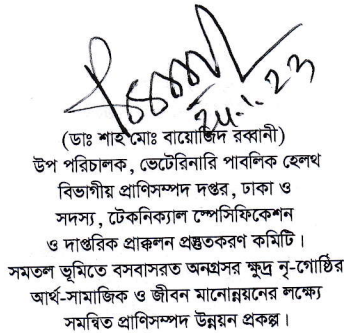 24.1.23
(ডাঃ শাহ মোঃ বায়োজিদ রব্বানী)
উপ পরিচালক, ভেটেরিনারি পাবলিক হেলথ
বিভাগীয় প্রাণিসম্পদ দপ্তর, ঢাকা ও
সদস্য, টেকনিক্যাল স্পেসিফিকেশন
ও দাপ্তরিক প্রাক্কলন প্রস্তুতকরণ কমিটি।
সমতল ভূমিতে বসবাসরত অনগ্রসর ক্ষুদ্র নৃ-গোষ্ঠির
আর্থ-সামাজিক ও জীবন মানোন্নয়নের লক্ষ্যে
সমন্বিত প্রাণিসম্পদ উন্নয়ন প্রকল্প।